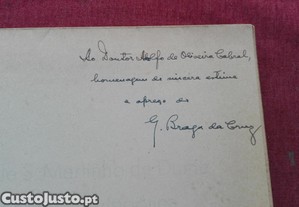 Ao Doutor Adolfo de Oliveira Cabral,
homenagem de sincera estima
e apreço de
G. Braga da Cruz
CustoJusto.pt